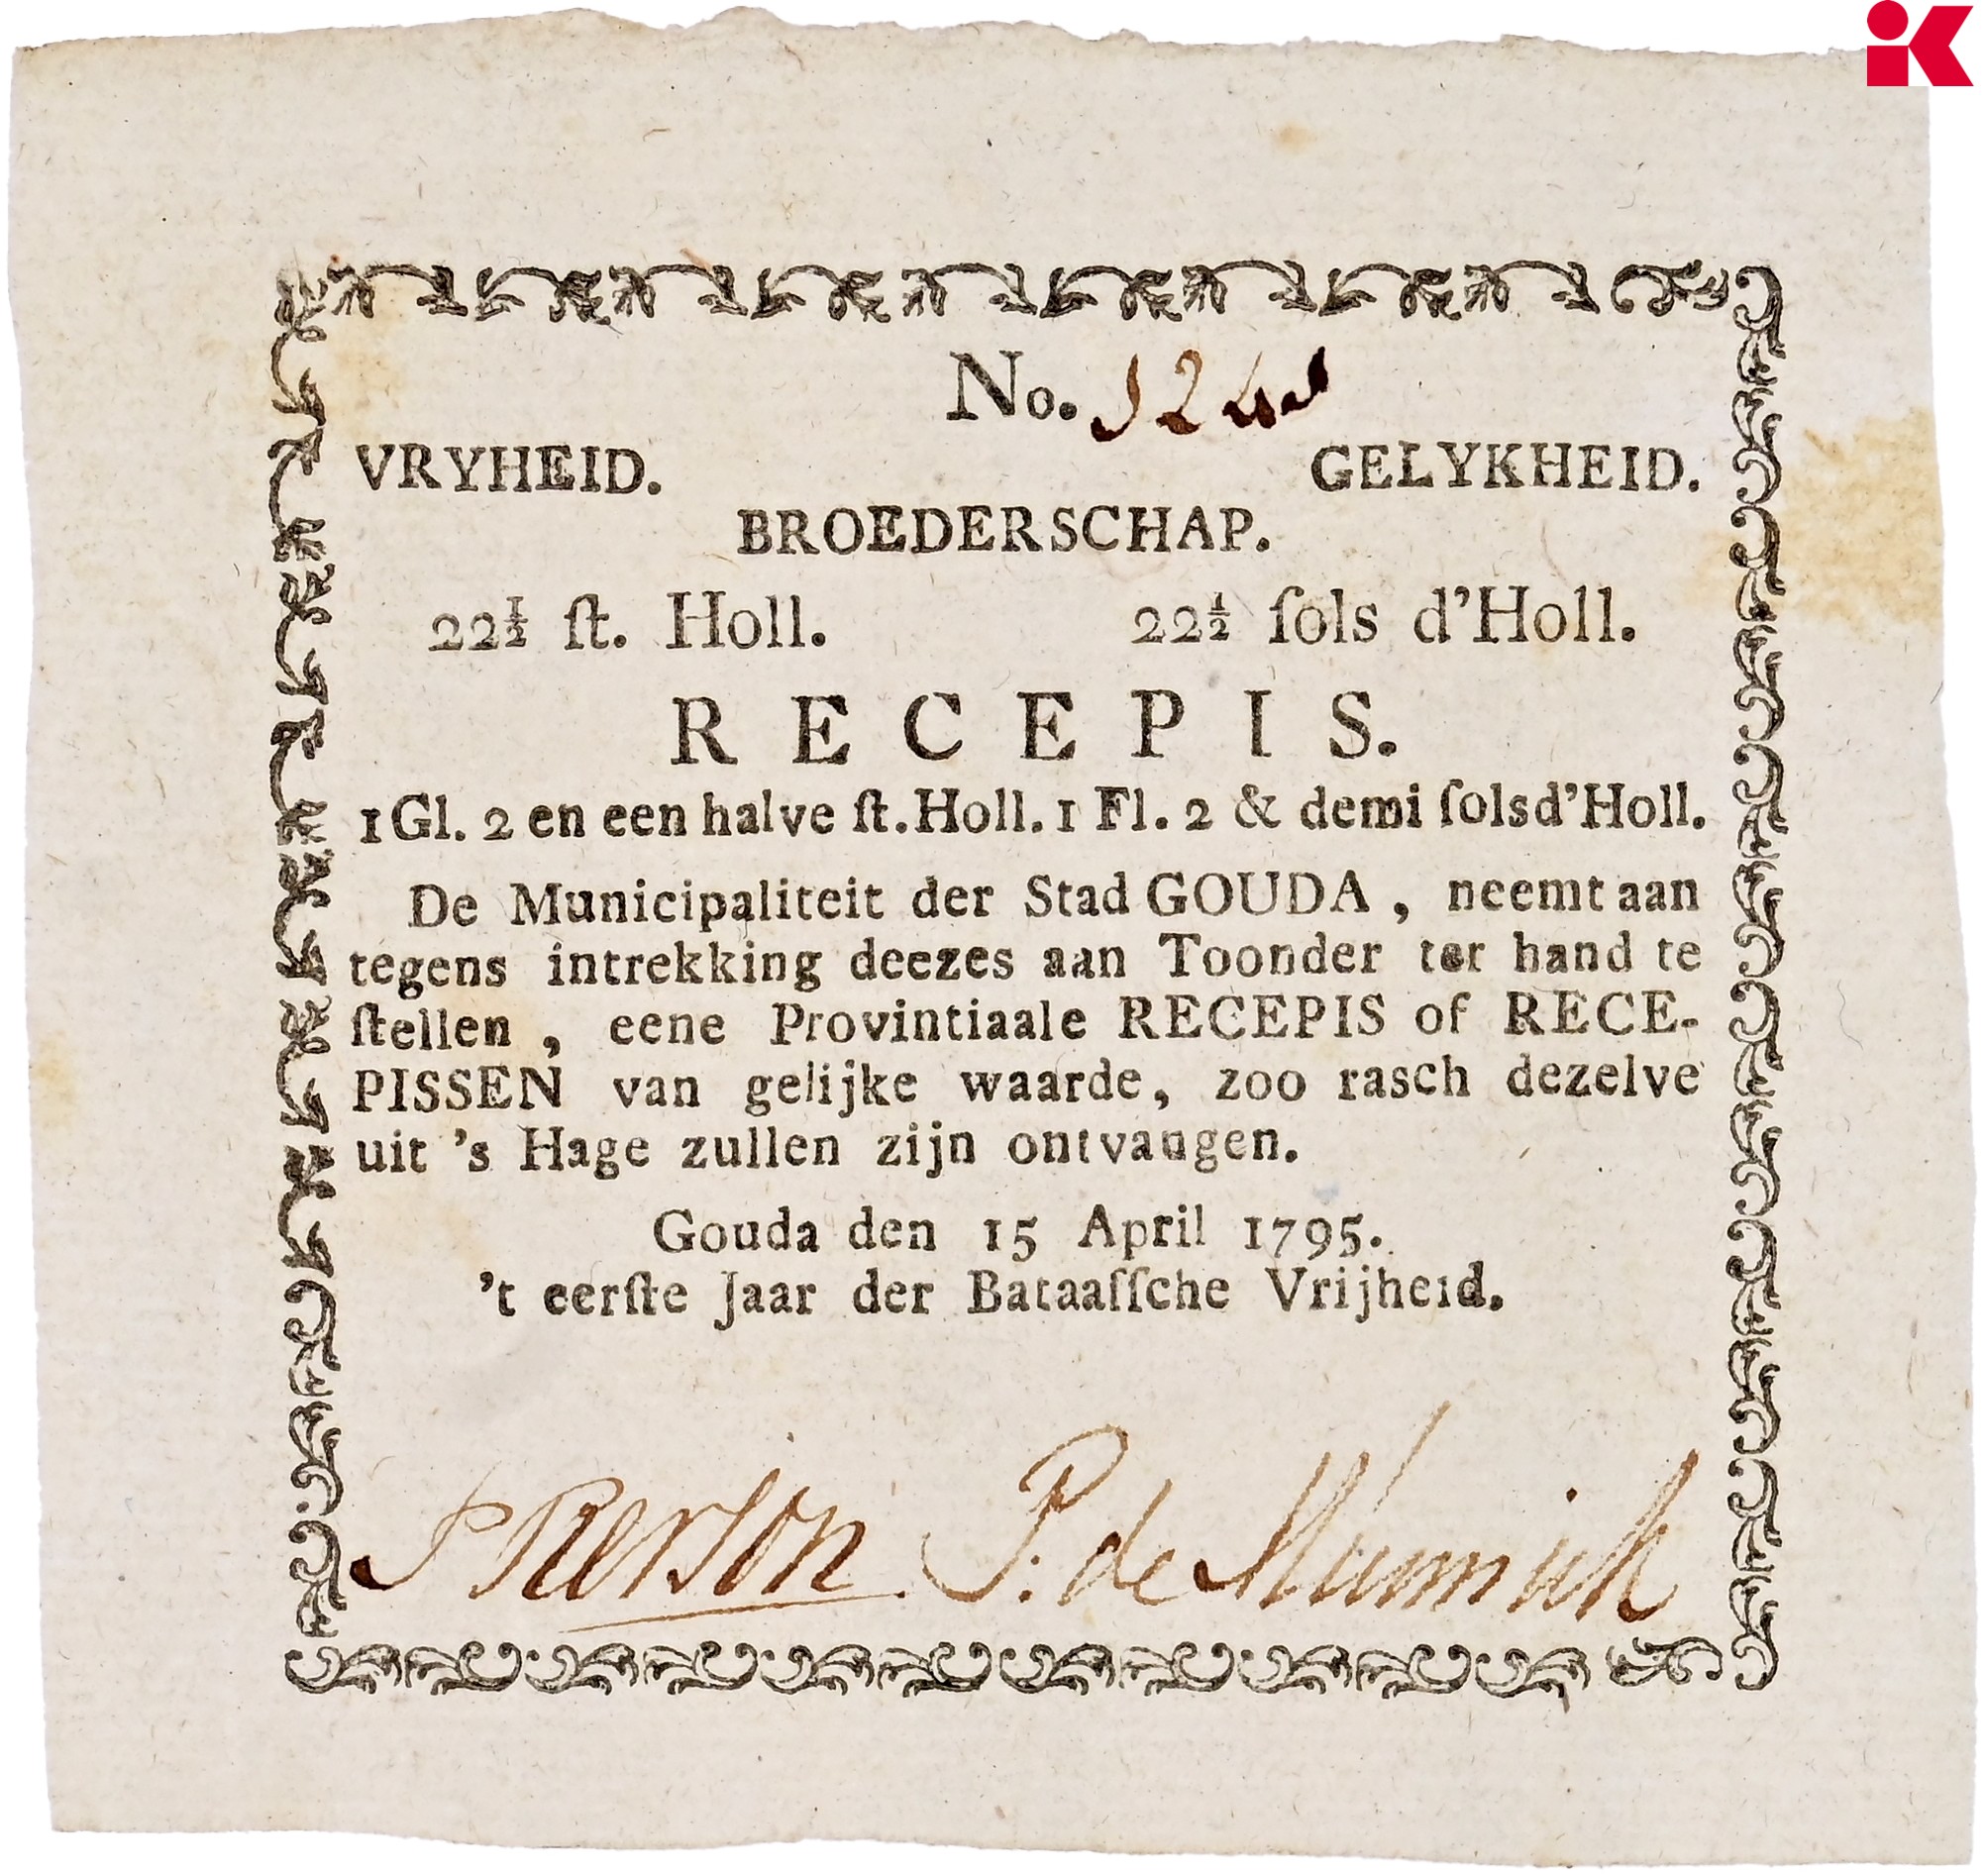 No. 124
VRYHEID. GELYKHEID.
BROEDERSCHAP.
22½ ſt. Holl. 22½ ſols d'Holl.
RECEPIS.
1 Gl. 2 en een halve ſt. Holl. 1 Fl. 2 & demi ſols d'Holl.
De Municipaliteit der Stad GOUDA, neemt aan
tegens intrekking deezes aan Toonder ter hand te
ſtellen, eene Provintiaale RECEPIS of RECE-
PISSEN van gelijke waarde, zoo rasch dezelve
uit 's Hage zullen zijn ontvangen.
Gouda den 15 April 1795.
't eerſte Jaar der Bataafſche Vrijheid.
P. de
iK